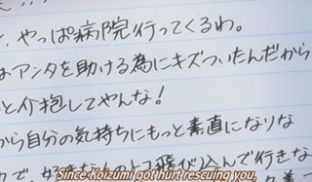 、やっぱ病院行ってくるわ。
はアンタを助ける為にキズついたんだから
と介抱してやんな!
から自分の気持ちにもっと素直になりな
で、
込んで行きな
Since Koizumi got hurt rescuing you,